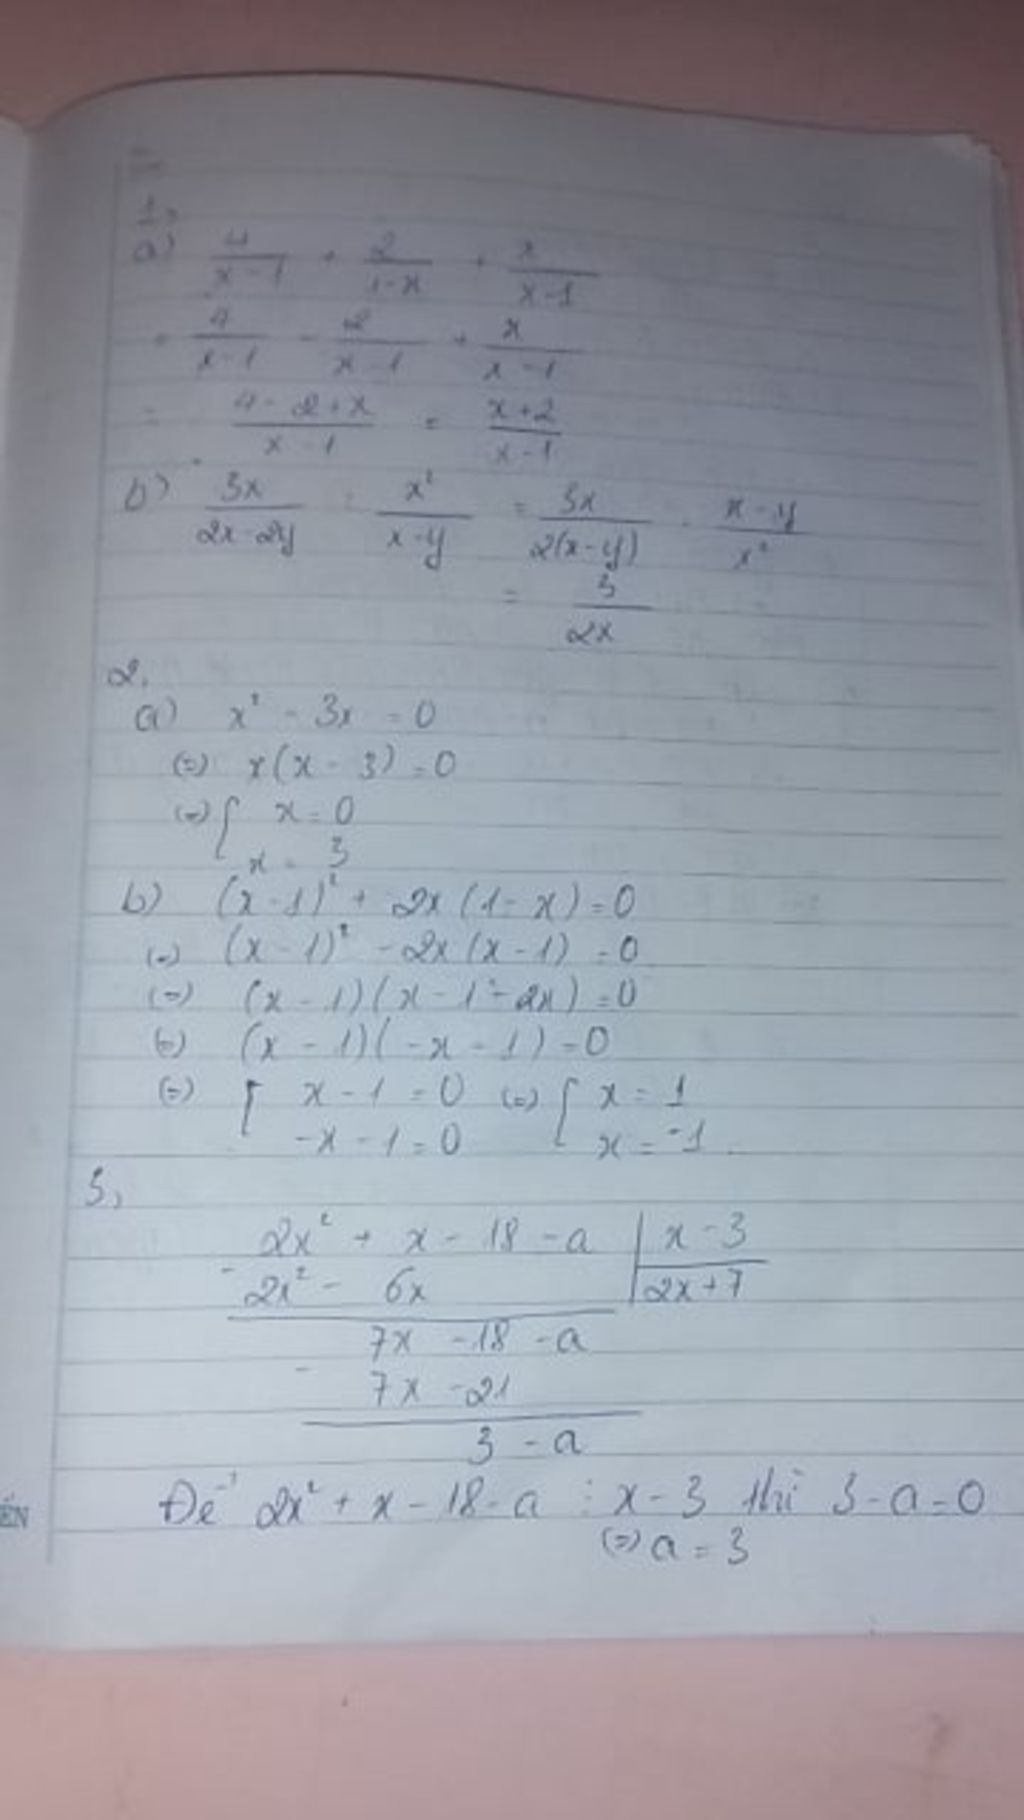 1,
a) 4/(x-1) + 2/(1-x) + x/(x-1)
= 4/(x-1) - 2/(x-1) + x/(x-1)
= (4-2+x)/(x-1) = (x+2)/(x-1)
b) 3x/(2x-2y) : x²/(x-y) = 3x/(2(x-y)) . (x-y)/x²
= 3/(2x)
2.
a) x² - 3x = 0
(=) x(x-3) = 0
(=) [ x = 0
x = 3
b) (x-1)² + 2x(1-x) = 0
(=) (x-1)² - 2x(x-1) = 0
(=) (x-1)(x-1-2x) = 0
(=) (x-1)(-x-1) = 0
(=) [ x-1 = 0 (=) [ x = 1
-x-1 = 0 x = -1
3,
2x² + x - 18 - a | x-3
- 2x² - 6x | 2x+7
7x - 18 - a
- 7x - 21
3 - a
Để 2x² + x - 18 - a ⋮ x-3 thì 3-a=0
(=) a = 3
ẾN